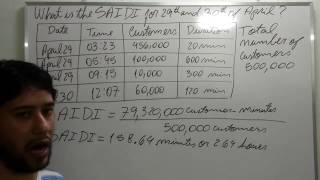 What is the SAIDI for 29th and 30th of April?
Date Time Customers Duration
April 29 03:23 456,000 20 min
April 29 05:45 100,000 600 min
April 29 09:15 10,000 300 min
30 12:07 60,000 120 min
Total number of customers 500,000
SAIDI = 79,320,000 customer-minutes
500,000 customers
SAIDI = 158.64 minutes or 2.64 hours